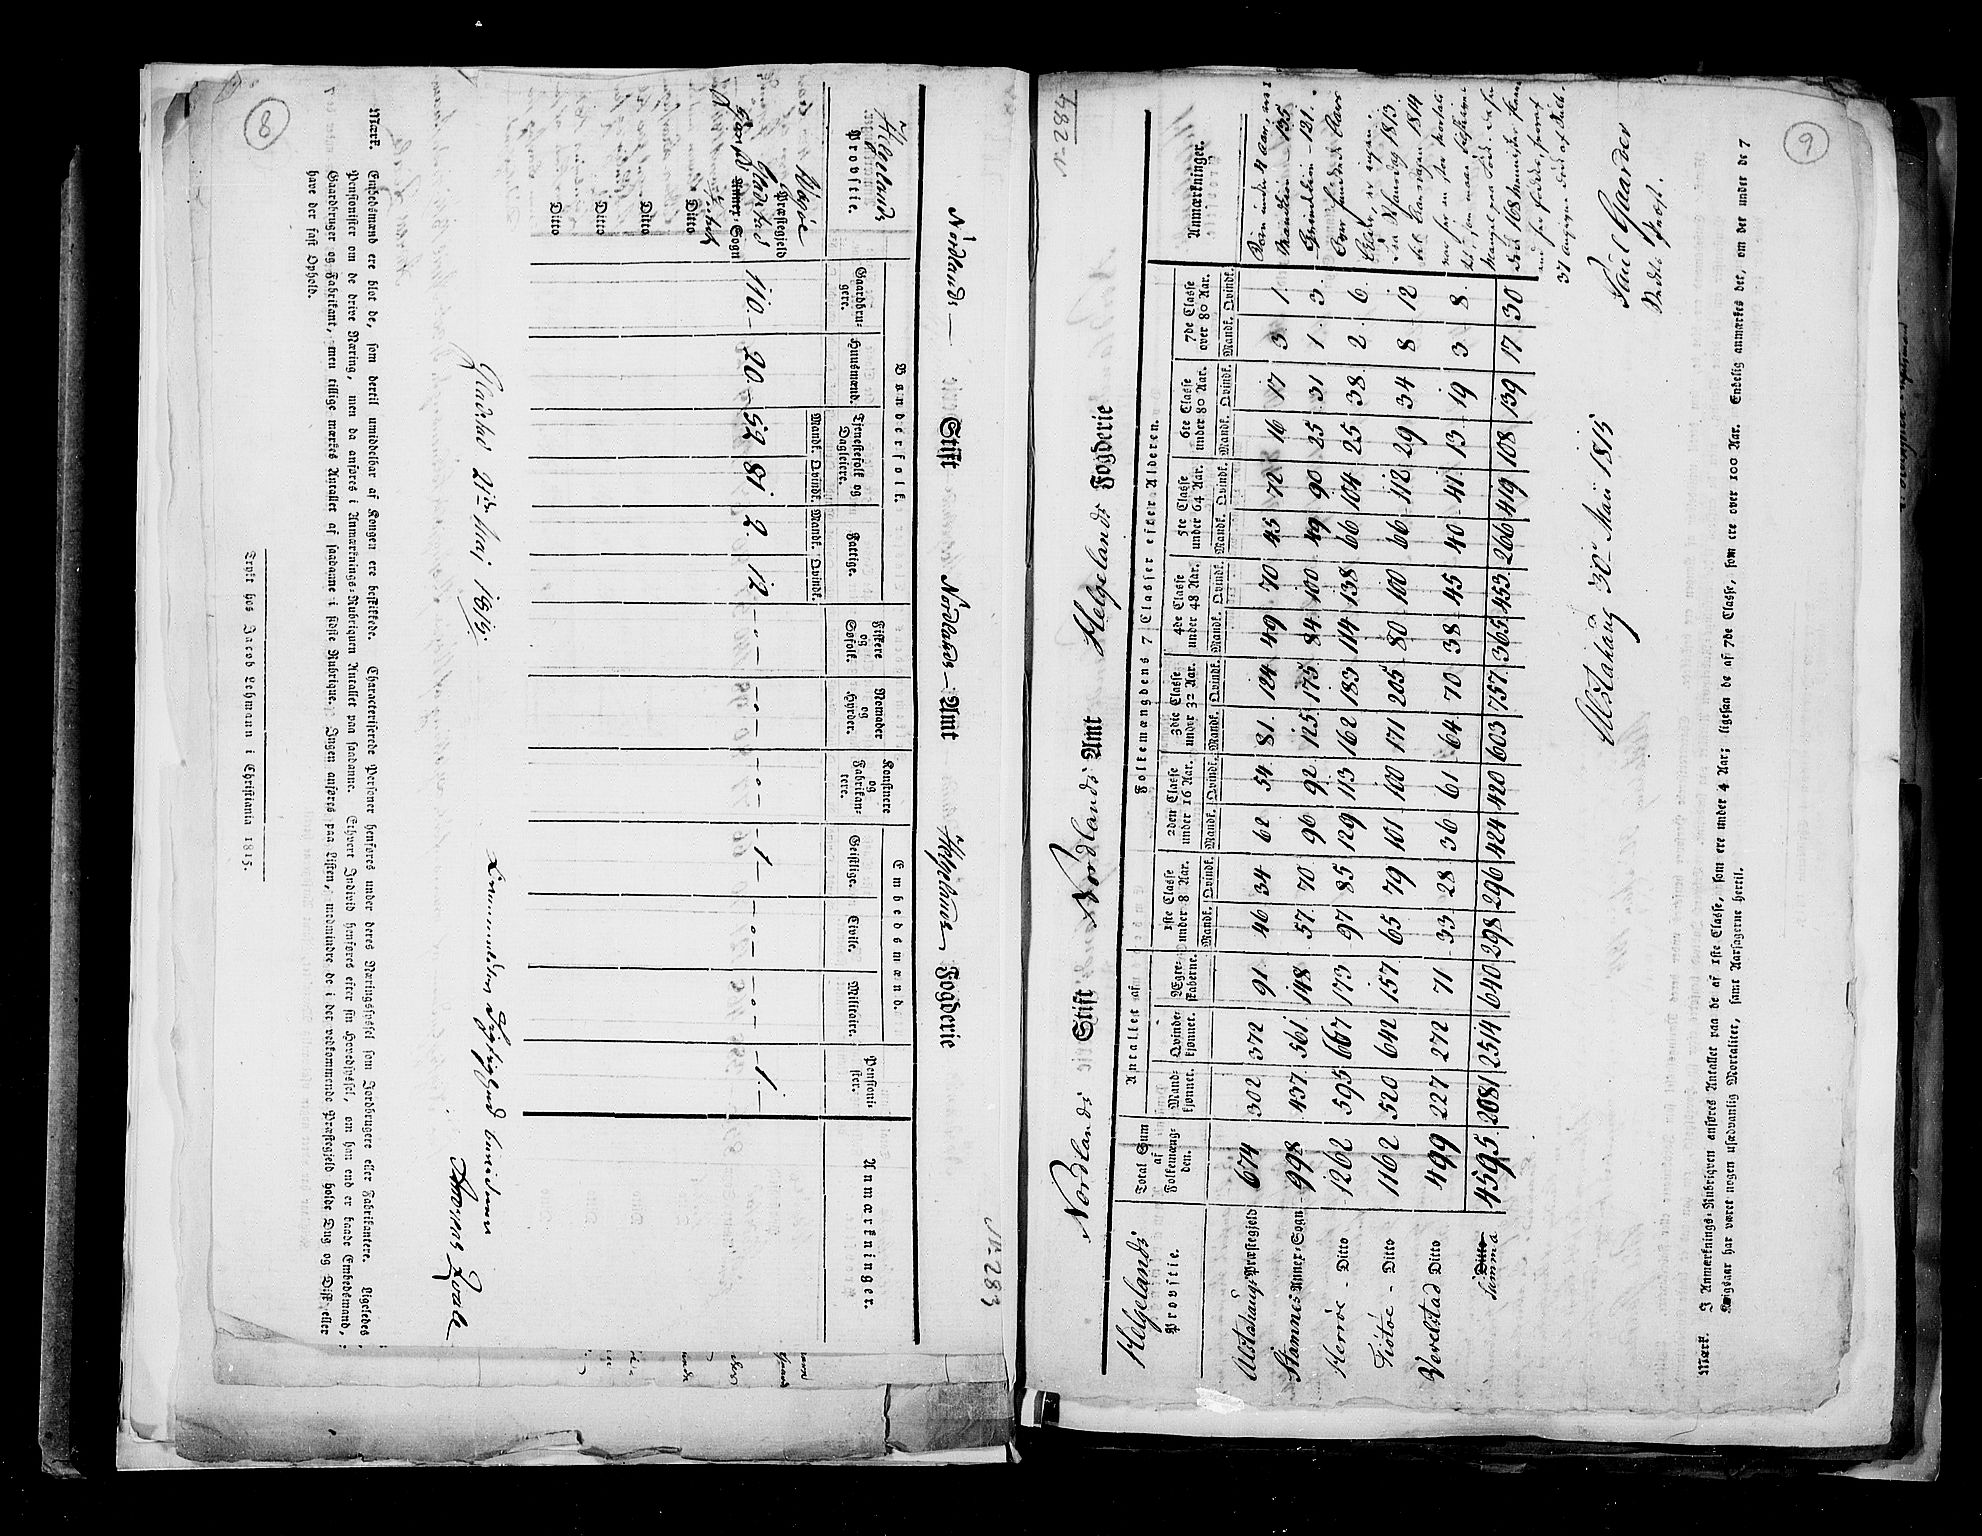 8
No 283
Nordlands — Stift Nordlands — Amt Helgelands Fogderie
Helgelands
Provstie.
Bønderfolk.
Embedsmænd.
Gaardbrugere.
Huusmænd.
Tjenestefolk og Dagleiere.
Mandk. Qvindk.
Fattige.
Mandk. Qvindk.
Fiskere og Søfolk.
Nomader og Hyrder.
Konstnere og Fabrikantere.
Geistlige.
Civile.
Militaire.
Pensionister.
Anmærkninger.
Præstegjeld
Sogn 110. — 20. — 52 81 2. 12 — o — — o — — o — — 1. — — o — — o — — 1. —
Ditto
Ditto
Ditto
Ditto
Ditto
21de Maj 1815.
Mærk. Embedsmænd ere blot de, som dertil umiddelbar af Kongen ere beskikkede. Characteriserede Personer henføres under deres Næringssyssel som Jordbrugere eller Fabrikantere. Ligeledes
Pensionister om de drive Næring, men da anføres i Anmærknings-Rubriquen Antallet paa saadanne. Ethvert Individ henføres efter sin Hovedsyssel, om han end er baade Embedsmand,
Gaardbruger og Fabrikant, men tillige mærkes Antallet af saadanne i sidste Rubrique. Ingen anføres paa Listen, medmindre de i det vedkommende Præstegjeld holde Dug og Disk eller
have der fast Ophold.
Trykt hos Jacob Lehmann i Christiania 1815.
9
No 284
Nordlands Stift Nordlands Amt Helgelands Fogderie
Helgelands
Provstie.
Total Sum af Folkemængden.
Antallet af
Mandkjønnet.
Qvindekjønnet.
Ægteskaberne.
Folkemængdens 7 Classer efter Alderen.
1ste Classe under 8 Aar.
2den Classe under 16 Aar.
3die Classe under 32 Aar.
4de Classe under 48 Aar.
5te Classe under 64 Aar.
6te Classe under 80 Aar.
7de Classe over 80 Aar.
Mandk. Qvindk. Mandk. Qvindk. Mandk. Qvindk. Mandk. Qvindk. Mandk. Qvindk. Mandk. Qvindk. Mandk. Qvindk.
Anmærkninger.
Alstahaugs Præstegjeld 674 302 372 91 46 34 62 54 81. 124 49 70 45 72 16 17 3 1.
Stamnes Annex-Sogn 998 437. 561 148 57. 70 96 92 125 175 84 100 49 90 25 31 1. 3.
Herrøe - Ditto 1262 595 667 173 97 85 129 113 162 183 114 138 66 104 25 38. 2 6.
Tiøtøe - Ditto 1162 520 642 157. 65 79 101 100 171 205 80 100 66 112 29 34 8 12
Verelstad Ditto 499 227 272 71 33 28 36 61 64. 70 38 45 40 41. 13. 19 3. 8.
Ditto
Summa 4595. 2081 2514 640 298 296 424 420 603 757. 365 453. 266 419 108 139 17 30
Børn under 4 Aar, ere
Mandkiøn 135.
Qvindkiøn 121.
Over hundrede Aar
er ingen.
1813
1814
168
37
Alstahaug 30te Maii 1815
Paul Gaarder
Provst.
Mærk. I Anmærknings-Rubriqven anføres Antallet paa de af 1ste Classe, som ere under 4 Aar; ligesaa de af 7de Classe, som ere over 100 Aar. Endelig anmærkes det, om der under de 7
Krigsaar har været nogen usædvanlig Mortalitet, samt Aarsagerne hertil.